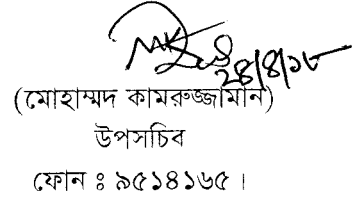 ২৪/৪/১৮
(মোহাম্মদ কামরুজ্জামান)
উপসচিব
ফোন ঃ ৯৫১৪১৬৫ ।